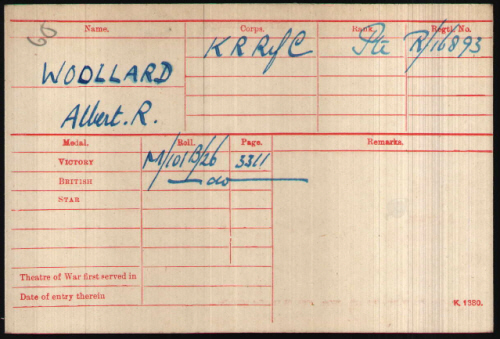 Name. Corps. Rank. Regtl. No.
60
WOOLLARD K R Rif C Pte R/16893
Albert. R.
Medal. Roll. Page. Remarks.
VICTORY M/101B/26 3311
BRITISH — do —
STAR
Theatre of War first served in
Date of entry therein
K. 1380.